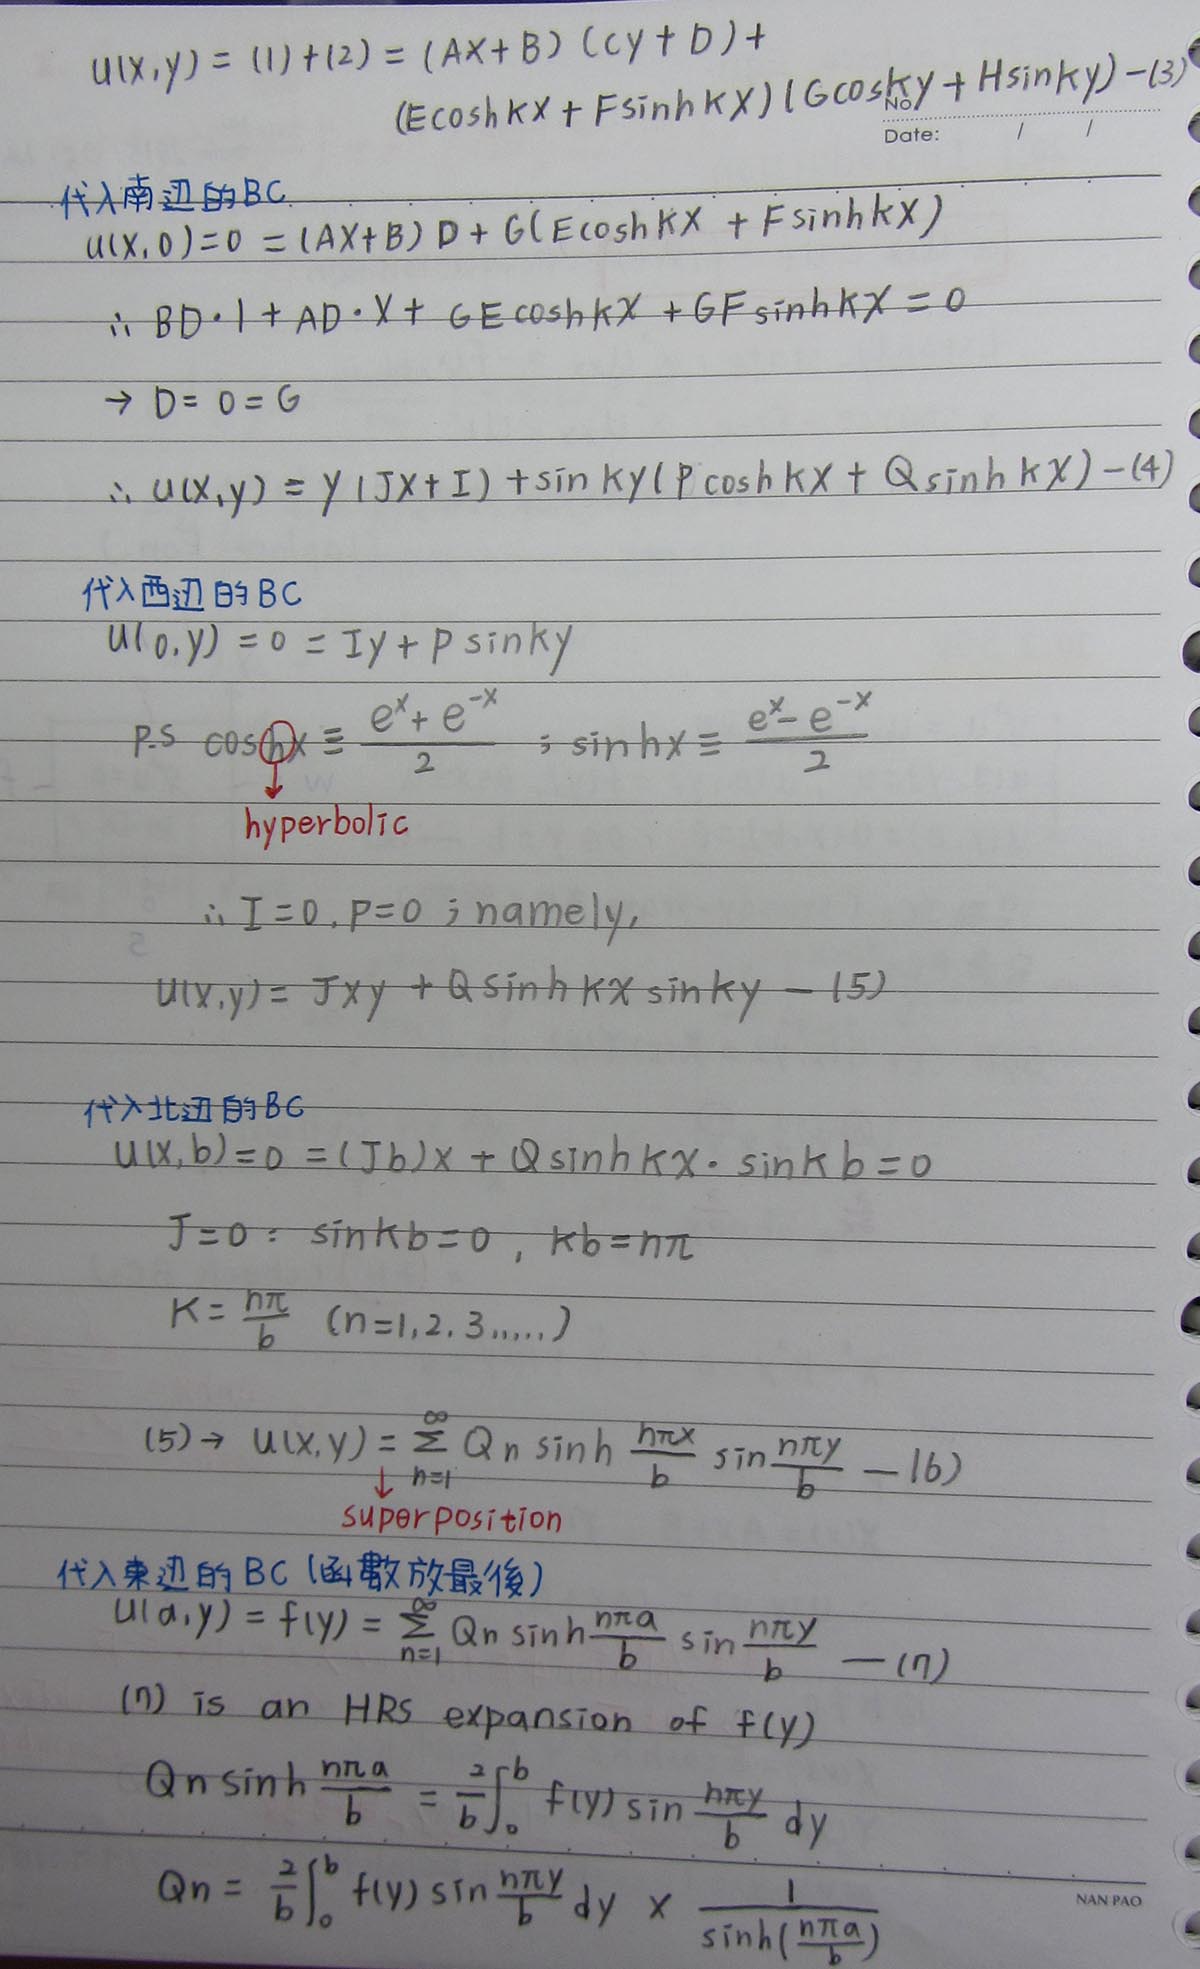 u(x,y) = (1)+(2) = (Ax+B) (Cy+D)+
(E cosh kx + F sinh kx) (G cos ky + H sin ky) -(3)
No
Date: / /
代入南辺的BC
u(x,0)=0 = (Ax+B) D + G(E cosh kx + F sinh kx)
∴ BD·1 + AD·x + GE cosh kx + GF sinh kx = 0
→ D= 0 = G
∴ u(x,y) = y(Jx+I) + sin ky (P cosh kx + Q sinh kx) -(4)
代入西辺的BC
u(0,y) = 0 = Iy + P sin ky
P.S cosh x ≡ (e^x + e^-x)/2 ; sinh x ≡ (e^x - e^-x)/2
hyperbolic
∴ I=0, P=0 ; namely,
u(x,y) = Jxy + Q sinh kx sin ky - (5)
代入北辺的BC
u(x,b)=0 =(Jb)x + Q sinh kx · sin kb = 0
J=0 : sin kb = 0 , kb = nπ
K = nπ/b (n=1,2,3.....)
(5)→ u(x,y) = ∑_{n=1}^∞ Qn sinh nπx/b sin nπy/b - (6)
superposition
代入東辺的BC (函數放最後)
u(a,y) = f(y) = ∑_{n=1}^∞ Qn sinh nπa/b sin nπy/b - (7)
(7) is an HRS expansion of f(y)
Qn sinh nπa/b = 2/b ∫_0^b f(y) sin nπy/b dy
Qn = 2/b ∫_0^b f(y) sin nπy/b dy × 1/sinh(nπa/b)
NAN PAO